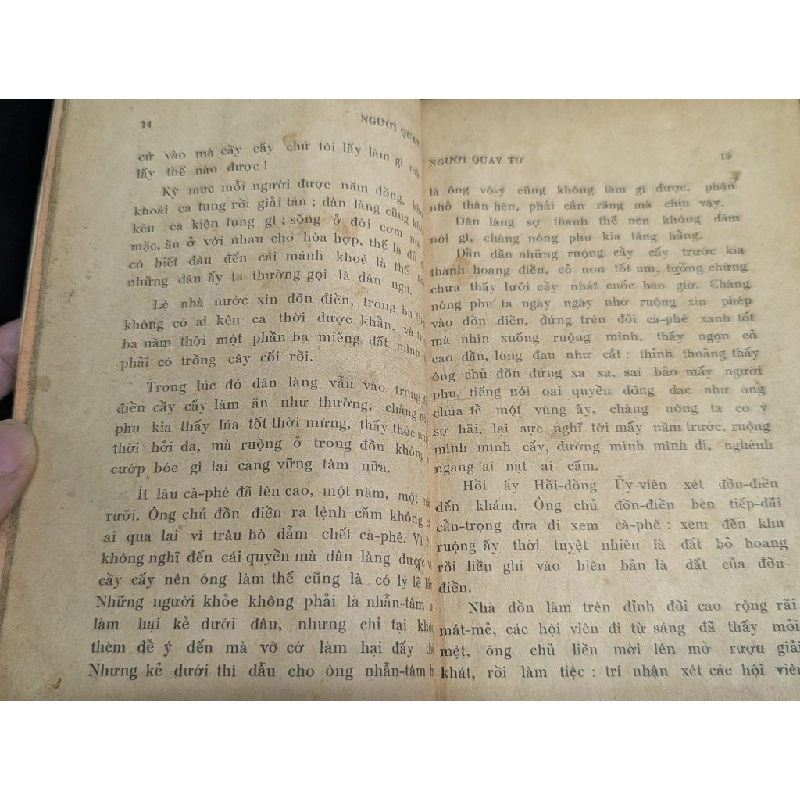 14
NGƯỜI QUAY
cứ vào mà cầy cấy chứ tôi lấy làm gì
lấy thế nào được!
Kỳ mức mỗi người được năm đồng,
khoái ca tụng rồi giải tán; dân làng cũng
kêu ca kiện tụng gì; sống ở đời cơm
mặc, ăn ở với nhau cho hòa hợp, thế là đủ
có biết đâu đến cái mánh khoé là thế
những dân ấy ta thường gọi là dân ngu.
Lệ nhà nước xin đồn điền, trong ba
không có ai kêu ca thời được khẩn, và
ba năm thời một phần ba miếng đất mình
phải có trồng cây cối rồi.
Trong lúc đó dân làng vẫn vào trong
điền cầy cấy làm ăn như thường, chàng
phu kia thấy lúa tốt thời mừng, thấy thóc
thời hởi dạ, mà ruộng ở trong đồn không
cướp bóc gì lại càng vững tâm nữa.
Ít lâu cà-phê đã lên cao, một năm, một
rưỡi. Ông chủ đồn điền ra lệnh cấm không
ai qua lại vì trâu bò dẫm chết cà-phê. Vì
không nghĩ đến cái quyền mà dân làng được
cầy cấy nên ông làm thế cũng là có lý lẽ
Những người khỏe không phải là nhẫn-tâm
làm hại kẻ dưới đâu, nhưng chỉ tại
thèm để ý đến mà vô cớ làm hại đấy
Nhưng kẻ dưới thì dẫu cho ông nhẫn-tâm
NGƯỜI QUAY TƠ
15
là ông vô-ý cũng không làm gì được, phận
nhỏ thân hèn, phải cắn răng mà chịu vậy.
Dân làng sợ thanh thế nên không dám
nói gì, chàng nông phu kia tảng hằng.
Dần dần những ruộng cầy cấy trước kia
thành hoang điền, cỏ non tốt um, tưởng chừng
chưa thấy lưỡi cầy nhát cuốc bao giờ. Chàng
nông phu ta ngày ngày nhớ ruộng xin phép
vào đồn điền, đứng trên đồi cà-phê xanh tốt
mà nhìn xuống ruộng mình, thấy ngọn cỏ
cao dần, lòng đau như cắt: thỉnh thoảng thấy
ông chủ đồn đứng xa xa, sai bảo mấy người
phu, tiếng nói oai quyền dõng dạc như ông
chúa tể một vùng ấy, chàng nông ta có ý
sợ hãi, lại sực nghĩ tới mấy năm trước, ruộng
mình mình cấy, đường mình mình đi, nghênh
ngang ai nạt ai cấm.
Hồi ấy Hội-đồng Ủy-viên xét đồn-điền
đến khám. Ông chủ đồn-điền bèn tiếp-đãi
cẩn-trọng đưa đi xem cà-phê: xem đến khu
ruộng ấy thời tuyệt nhiên là đất bỏ hoang
rồi liền ghi vào biên bản là đất của đồn-
điền.
Nhà đồn làm trên đỉnh đồi cao rộng rãi
mát-mẻ, các hội viên đi từ sáng đã thấy mỏi
mệt, ông chủ liền mời lên mở rượu giải
khát, rồi làm tiệc: trí nhận xét các hội viên